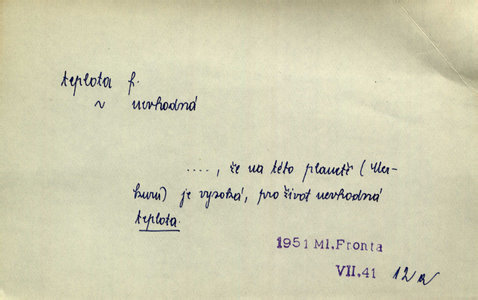 teplota f.
~ nevhodná
...., že na této planetě (Mer-
kuru) je vysoká, pro život nevhodná
teplota.
1951 Ml.Fronta
VII.41 12a